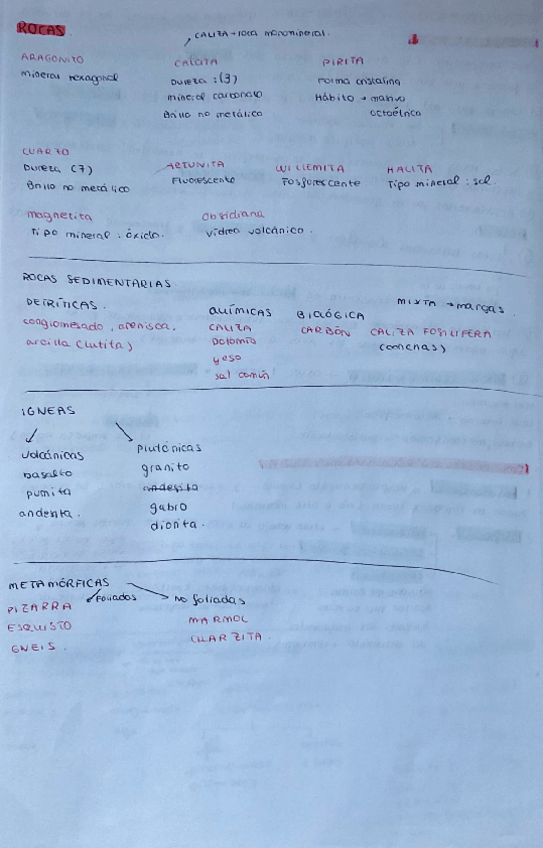 ROCAS
CALIZA → roca monomineral.
ARAGONITO
mineral hexagonal
CALCITA
Dureza : (3)
mineral carbonato
Brillo no metálico
PIRITA
Forma cristalina
Hábito → masivo
octoétrico
CUARZO
Dureza (7)
Brillo no metálico
AUTUNITA
Fluorescente
WILLEMITA
Fosforescente
HALITA
Tipo mineral : sal.
magnetita
Tipo mineral : óxido.
Obsidiana
vidreo volcánico.
ROCAS SEDIMENTARIAS
DETRÍTICAS.
conglomerado, arenisca,
arcilla (lutita)
QUÍMICAS
CALIZA
Dolomía
yeso
sal común
BIOLÓGICA
CARBÓN
MIXTA → margas
CALIZA FOSILIFERA
(conchas)
IGNEAS
Volcánicas
basalto
pumita
andesita.
Plutónicas
granito
andesita
gabro
diorita.
METAMÓRFICAS
Foliadas
PIZARRA
ESQUISTO
GNEIS.
No foliadas
MARMOL
CUARZITA.